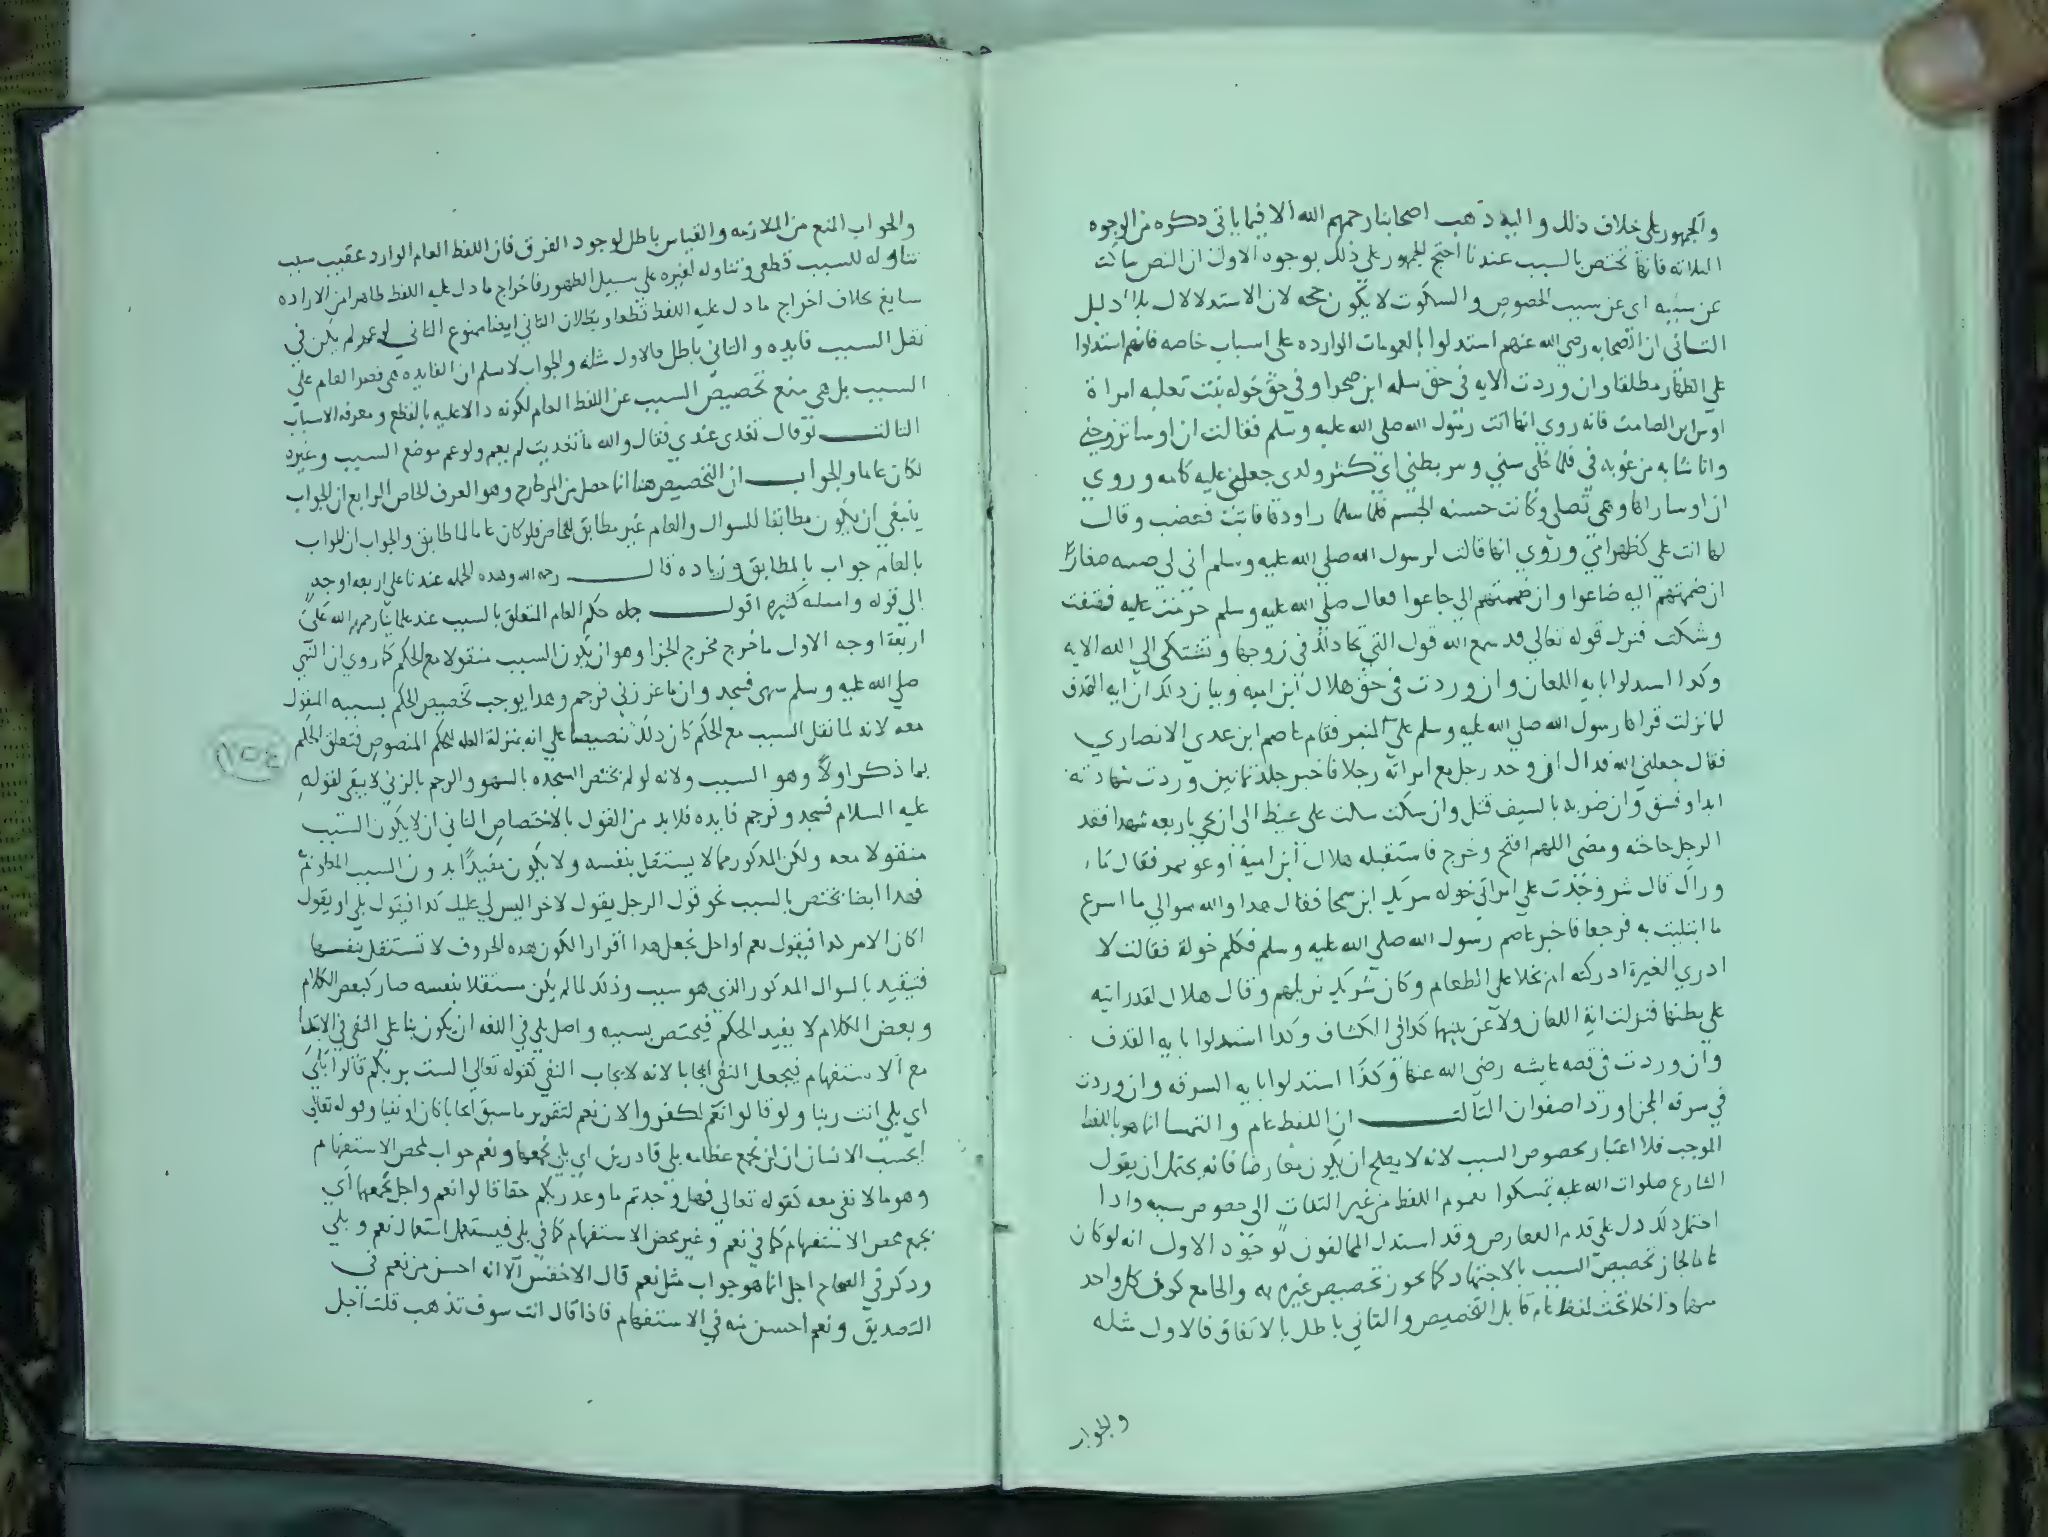 والجمهور على خلاف ذلك واليه ذهب اصحابنا رحمهم الله الا فيما ياتي ذكره من الوجوه
الثلاثة فانها تختص بالسبب عندنا احتج الجمهور على ذلك بوجوه الاول ان النص ساكت
عن سببه اي عن سبب الخصوص والسكوت لا يكون حجه لان الاستدلال بلا دليل
الثاني ان الصحابه رضي الله عنهم استدلوا بالعمومات الوارده على اسباب خاصه فانهم استدلوا
على الظهار مطلقا وان وردت الايه في حق سلمه ابن صخر او في حق خوله بنت ثعلبه امراة
اوس ابن الصامت فانه روى انها اتت رسول الله صلى الله عليه وسلم فقالت ان اوسا تزوجني
وانا شابه مرغوبه في فلما خلى سني ونثر بطني اي كثر ولدي جعلني عليه كامه وروي
ان اوسا راها وهي تصلي وكانت حسنه الجسم فلما سلمت راودها فابت فغضب وقال
لها انت علي كظهر امي وروي انها قالت لرسول الله صلى الله عليه وسلم ان لي صبيه صغارا
ان ضممتهم اليه ضاعوا وان ضممتهم الي جاعوا فقال صلى الله عليه وسلم حرمت عليه فهتفت
وشكت فنزل قوله تعالى قد سمع الله قول التي تجادلك في زوجها وتشتكي الى الله الايه
وكذا استدلوا بايه اللعان وان وردت في حق هلال ابن اميه وبيان ذلك ان ايه القذف
لما نزلت قراها رسول الله صلى الله عليه وسلم على المنبر فقام عاصم ابن عدي الانصاري
فقال جعلني الله فداك ان وجد رجل مع امراته رجلا فاخبر جلد ثمانين وردت شهادته
ابدا وفسق وان ضربه بالسيف قتل وان سكت سكت على غيظ الى ان يجي باربعه شهدا فقد
الرجل حاجته ومضى اللهم افتح وخرج فاستقبله هلال ابن امية او عويمر فقال ما
وراك قال شر وجدت على امراتي خوله شريك ابن سحما فقال هذا والله سوالي ما اسرع
ما ابتليت به فرجعا فاخبر عاصم رسول الله صلى الله عليه وسلم فكلم خولة فقالت لا
ادري الغيرة ادركته ام بخلا على الطعام وكان شريك نزيلهم وقال هلال لقد رايته
على بطنها فنزلت اية اللعان ولاعن بينهما كذا في الكشاف وكذا استدلوا بايه القذف
وان وردت في قصه عايشه رضي الله عنها وكذا استدلوا بايه السرقه وان وردت
في سرقه المجن او ردا صفوان الثالث ان اللفظ عام والتمسك انما هو باللفظ
الموجب فلا اعتبار بخصوص السبب لانه لا يصلح ان يكون معارضا فانه يحتمل ان يقول
الشارع صلوات الله عليه تمسكوا بعموم اللفظ من غير التفات الى خصوص سببه واذا
احتمل ذلك دل على عدم المعارض وقد استدل المخالفون بوجوه الاول انه لو كان
عاما لجاز تخصيص السبب بالاجتهاد كما يجوز تخصيص غيره به والجامع كون كل واحد
منهما داخلا تحت لفظ عام قابل للتخصيص والثاني باطل بالاتفاق فالاول مثله
والجواب
والجواب المنع من الملازمه والقياس باطل لوجود الفرق فان اللفظ العام الوارد عقيب سبب
تناوله للسبب قطعي وتناوله لغيره على سبيل الظهور فاخراج ما دل عليه اللفظ ظاهرا من الاراده
سايغ بخلاف اخراج ما دل عليه اللفظ قطعا وبطلان الثاني ايضا ممنوع الثاني لو عم لم يكن في
نقل السبب فايده والثاني باطل فالاول مثله والجواب لا نسلم ان الفايده هي قصر العام على
السبب بل هي منع تخصيص السبب عن اللفظ العام لكونه دالا عليه بالقطع ومعرفه الاسباب
الثالث لو قال تغدى عندي فقال والله ما تغديت لم يعم ولو عم موضع السبب وغيره
لكان عاما والجواب ان التخصيص هنا انما حصل من الخارج وهو العرف الخاص الرابع ان الجواب
ينبغي ان يكون مطابقا للسوال والعام غير مطابق للخاص فلو كان عاما لما طابق والجواب ان الجواب
بالعام جواب بالمطابق وزياده قال رحمه الله وهذه الجمله عندنا على اربعه اوجه
الى قوله وامثله كثيره اقول جمله حكم العام المتعلق بالسبب عند علمائنا رحمهم الله على
اربعة اوجه الاول ما خرج مخرج الجزا وهو ان يكون السبب منقولا مع الحكم كما روي ان النبي
صلى الله عليه وسلم سهى فسجد وان ماعز زنى فرجم وهذا يوجب تخصيص الحكم بسببه المنقول
معه لانه لما نقل السبب مع الحكم كان ذلك تنصيصا على انه بمنزلة العله للحكم المنصوص فتعلق الحكم
بما ذكر اولا وهو السبب ولانه لو لم تختص السجده بالسهو والرجم بالزنى لا يبقى لقوله
عليه السلام فسجد وفرجم فايده فلا بد من القول بالاختصاص الثاني ان لا يكون السبب
منقولا معه ولكن المذكور مما لا يستقل بنفسه ولا يكون مفيدا بدون السبب
فهذا ايضا يختص بالسبب نحو قول الرجل يقول لاخر اليس لي عليك كذا فيقول بلى او يقول
اكان الامر كذا فيقول نعم او اجل يجعل هذا اقرارا لكون هذه الحروف لا تستقل بنفسها
فتتقيد بالسوال المذكور الذي هو سبب وذلك لما لم يكن مستقلا بنفسه صار كبعض الكلام
وبعض الكلام لا يفيد الحكم فيختص بسببه واصل بلى في اللغه ان يكون بنا على النفي في الابتدا
مع الاستفهام فيجعل النفي ايجابا لانه لايجاب النفي كقوله تعالى الست بربكم قالوا بلى
اي بلى انت ربنا ولو قالوا نعم لكفروا لان نعم لتقرير ما سبق ايجابا كان او نفيا وقوله تعالى
ايحسب الانسان ان لن نجمع عظامه بلى قادرين اي بلى نجمعها ونعم جواب لمحض الاستفهام
وهو ما لا نفي معه كقوله تعالى فهل وجدتم ما وعد ربكم حقا قالوا نعم واجل تجمعهما اي
تجمع محض الاستفهام كما في نعم وغير محض الاستفهام كما في بلى فيستعمل استعمال نعم وبلى
وذكر في الصحاح اجل انما هو جواب مثل نعم قال الاخفش الا انه احسن من نعم في
التصديق ونعم احسن منه في الاستفهام فاذا قال انت سوف تذهب قلت اجل